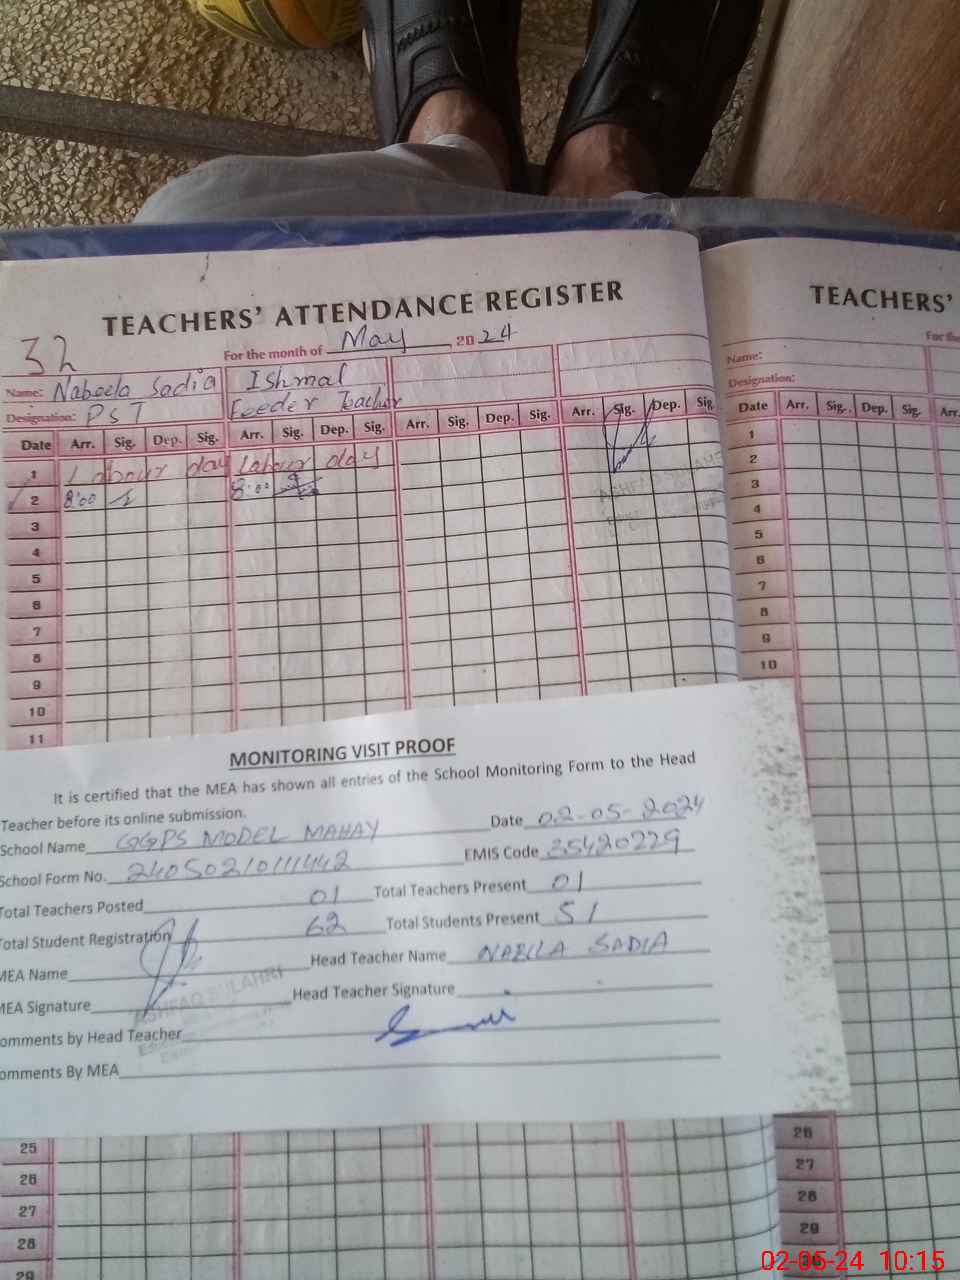 TEACHERS' ATTENDANCE REGISTER
32
For the month of May 2024
Name: Nabeela Sadia Ishmal
Designation: PST Feeder Teacher
Date Arr. Sig. Dep. Sig. Arr. Sig. Dep. Sig. Arr. Sig. Dep. Sig. Arr. Sig. Dep. Sig.
1 Labour day Labour day
2 8:00 8:00
3
4
5
6
7
8
9
10
11
MONITORING VISIT PROOF
It is certified that the MEA has shown all entries of the School Monitoring Form to the Head
Teacher before its online submission.
School Name GGPS MODEL MAHAY Date 02-05-2024
School Form No. 24050210111442 EMIS Code 35420229
Total Teachers Posted 01 Total Teachers Present 01
Total Student Registration 62 Total Students Present 51
MEA Name Head Teacher Name NAELLA SADIA
MEA Signature Head Teacher Signature
ASHFAQ SULAHRI
omments by Head Teacher
omments By MEA
25
26
27
28
29
TEACHERS'
For the
Name:
Designation:
Date Arr. Sig. Dep. Sig. Arr.
1
2
3
4
5
6
7
8
9
10
26
27
28
29
02-05-24 10:15